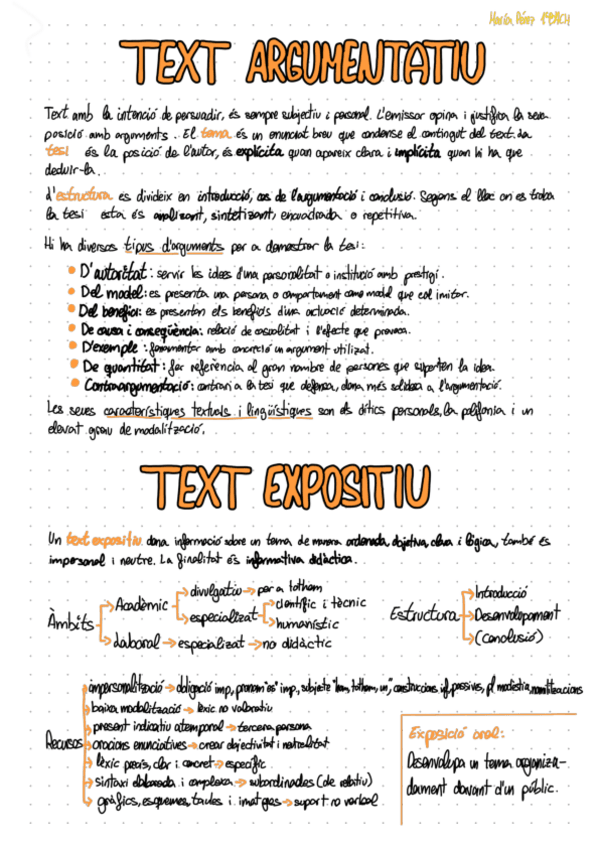 María Pérez 1r BTCH
TEXT ARGUMENTATIU
Text amb la intenció de persuadir, és sempre subjectiu i personal. L'emissor opina i justifica la seva
posició amb arguments. El tema és un enunciat breu que condensa el contingut del text. La
tesi és la posició de l'autor, és explícita quan apareix clara i implícita quan hi ha que
deduir-la.
L'estructura es divideix en introducció, cos de l'argumentació i conclusió. Segons el lloc on es troba
la tesi esta és analitzant, sintetitzant, encuadrada o repetitiva.
Hi ha diversos tipus d'arguments per a demostrar la tesi:
D'autoritat: servir les idees d'una personalitat o institució amb prestigi.
Del model: es presenta una persona o comportament como model que cal imitar.
Del benefici: es presenten els beneficis d'una actuació determinada.
De causa i conseqüència: relació de casualitat i l'efecte que provoca.
D'exemple: fonamentar amb concreció un argument utilitzat.
De quantitat: fer referència al gran nombre de persones que suporten la idea.
Contraargumentació: contrari a la tesi que defensa, dona més solidesa a l'argumentació.
Les seues característiques textuals i lingüístiques son els dítics personals, la polifonia i un
elevat grau de modalització.
TEXT EXPOSITIU
Un text expositiu dona informació sobre un tema de manera ordenada, objetiva, clara i lògica, també és
impersonal i neutre. La finalitat és informativa didàctica.
Àmbits
Acadèmic
divulgatiu → per a tothom
especialitzat
científic i tècnic
humanístic
laboral → especialitzat → no didàctic
Estructura
Introducció
Desenvolupament
(Conclusió)
Recursos
impersonalització → obligació imp, pronom "es" imp, subjecte "hom, tothom, un", construccions inf, passives, pl modèstia, nominalitzacions
baixa modalització → lèxic no valoratiu
present indicatiu atemporal → tercera persona
oracions enunciatives → crear objectivitat i neutralitat
lèxic precís, clar i concret → específic
sintaxi elaborada i complexa → subordinades (de relatiu)
gràfics, esquemes, taules i imatges → suport no verbal
Exposició oral:
Desenvolupa un tema organitza-
dament davant d'un públic.